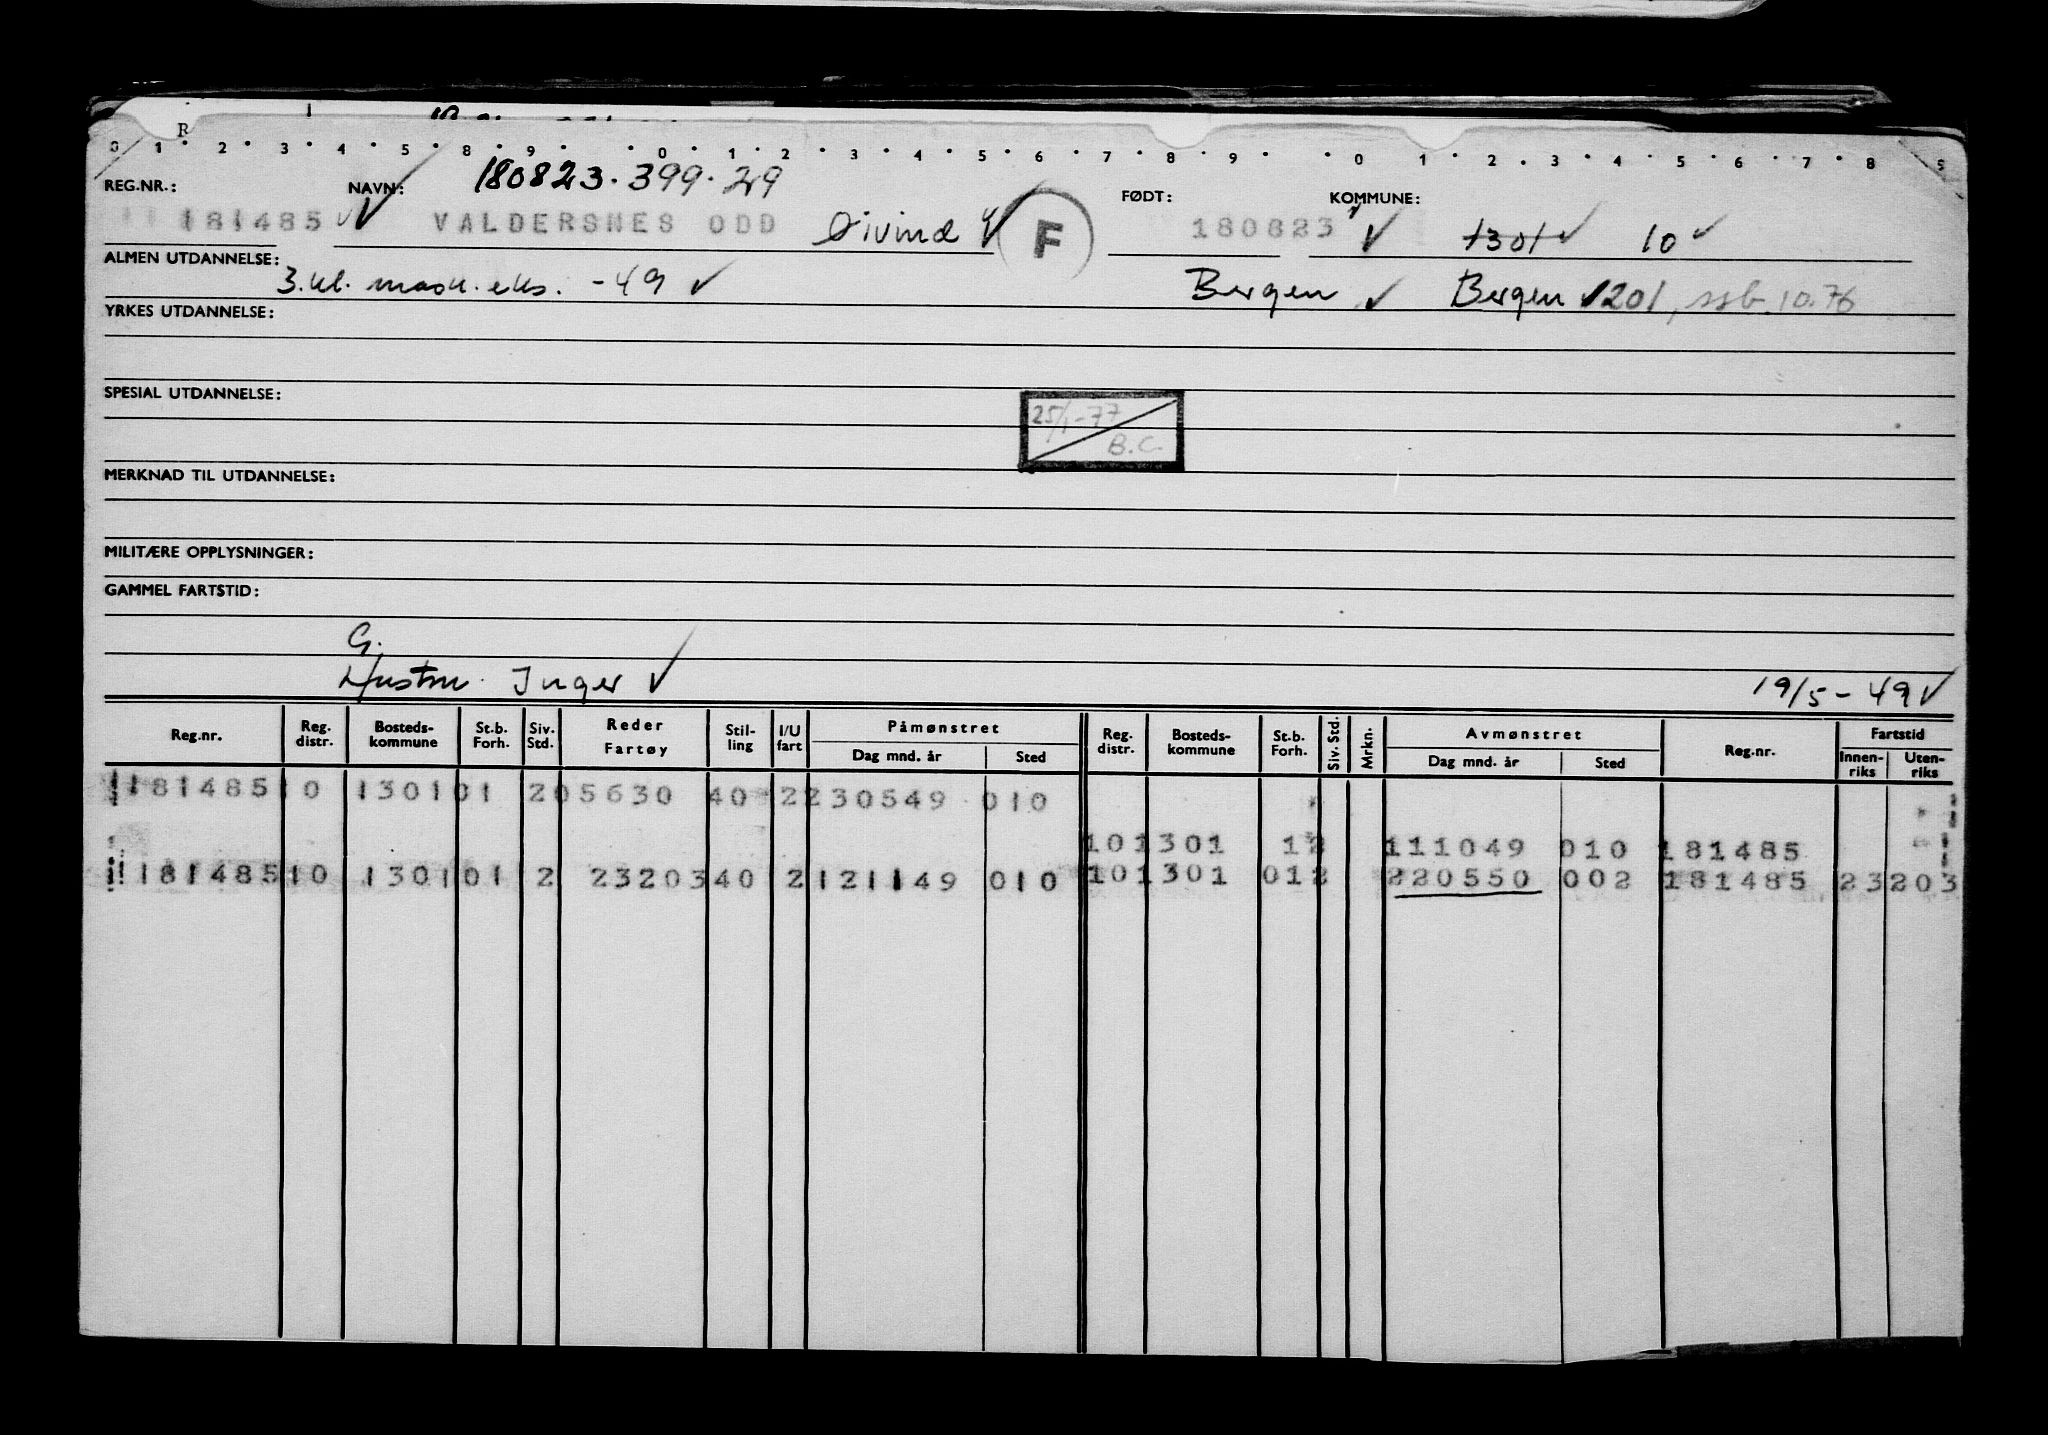 R
0 1 · 2 · 3 · 4 · 5 · 8 · 9 · · 0 · 1 · 2 · 3 · 4 · 5 · 6 · 7 · 8 · 9 · · 0 1 · 2 · 3 · 4 · 5 · 6 · 7 · 8 5
180823.399.29
REG.NR.: NAVN: FØDT: KOMMUNE:
181485 √ VALDERSNES ODD Øivind √ F 180823 √ 1301 √ 10 √
ALMEN UTDANNELSE:
3.kl. mask. eks. -49 √ Bergen √ Bergen 1201, ssb. 10.76
YRKES UTDANNELSE:
SPESIAL UTDANNELSE:
25/1-77
B.C.
MERKNAD TIL UTDANNELSE:
MILITÆRE OPPLYSNINGER:
GAMMEL FARTSTID:
G.
Hustru. Inger √ 19/5-49 √
Reg.nr. Reg. distr. Bosteds-kommune St.b. Forh. Siv. Std. Reder Fartøy Stil-ling I/U fart Påmønstret Dag mnd. år Sted Reg. distr. Bosteds-kommune St.b. Forh. Siv. Std. Mrkn. Avmønstret Dag mnd. år Sted Reg.nr. Fartstid Innen-riks Uten-riks
181485 10 1301 01 2 05630 40 2 230549 010
10 1301 1 2 111049 010 181485
181485 10 1301 01 2 23203 40 2 121149 010 10 1301 01 2 220550 002 181485 23203